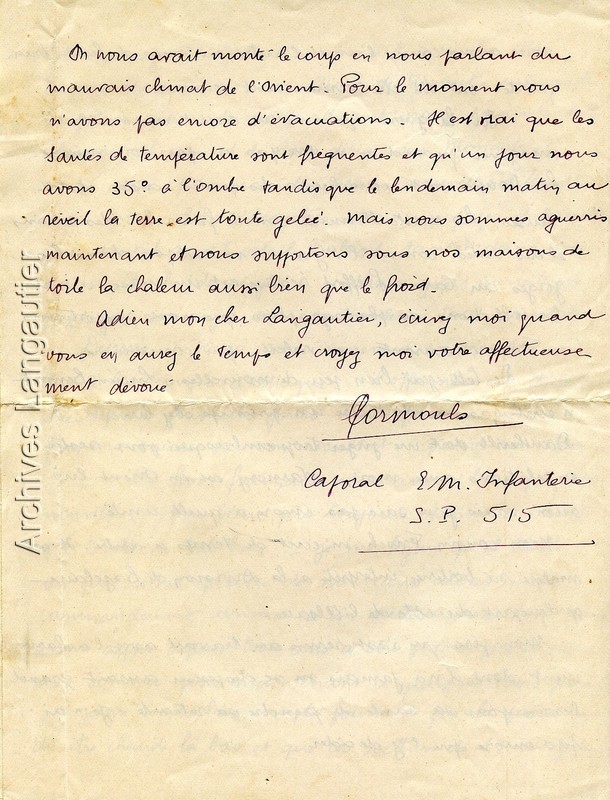 On nous avait monté le coup en nous parlant du
mauvais climat de l'Orient. Pour le moment nous
n'avons pas encore d'évacuations. Il est vrai que les
sautés de température sont fréquentes et qu'un jour nous
avons 35° à l'ombre tandis que le lendemain matin au
réveil la terre est toute gelée. Mais nous sommes aguerris
maintenant et nous supportons sous nos maisons de
toile la chaleur aussi bien que le froid.
Adieu mon cher Langautier, écrivez moi quand
vous en aurez le temps et croyez moi votre affectueuse
ment dévoué
Cormouls
Caporal E.M. Infanterie
S. P. 515
Archives Langautier